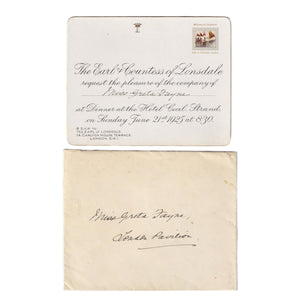 The Earl & Countess of Lonsdale
request the pleasure of the company of
Miss Greta Fayne
at Dinner at the Hotel Cecil, Strand,
on Sunday June 21st 1925 at 8.30.
R.S.V.P. to
THE EARL OF LONSDALE,
14 CARLTON HOUSE TERRACE,
LONDON, S.W.1.
Miss Greta Fayne,
London Pavilion.